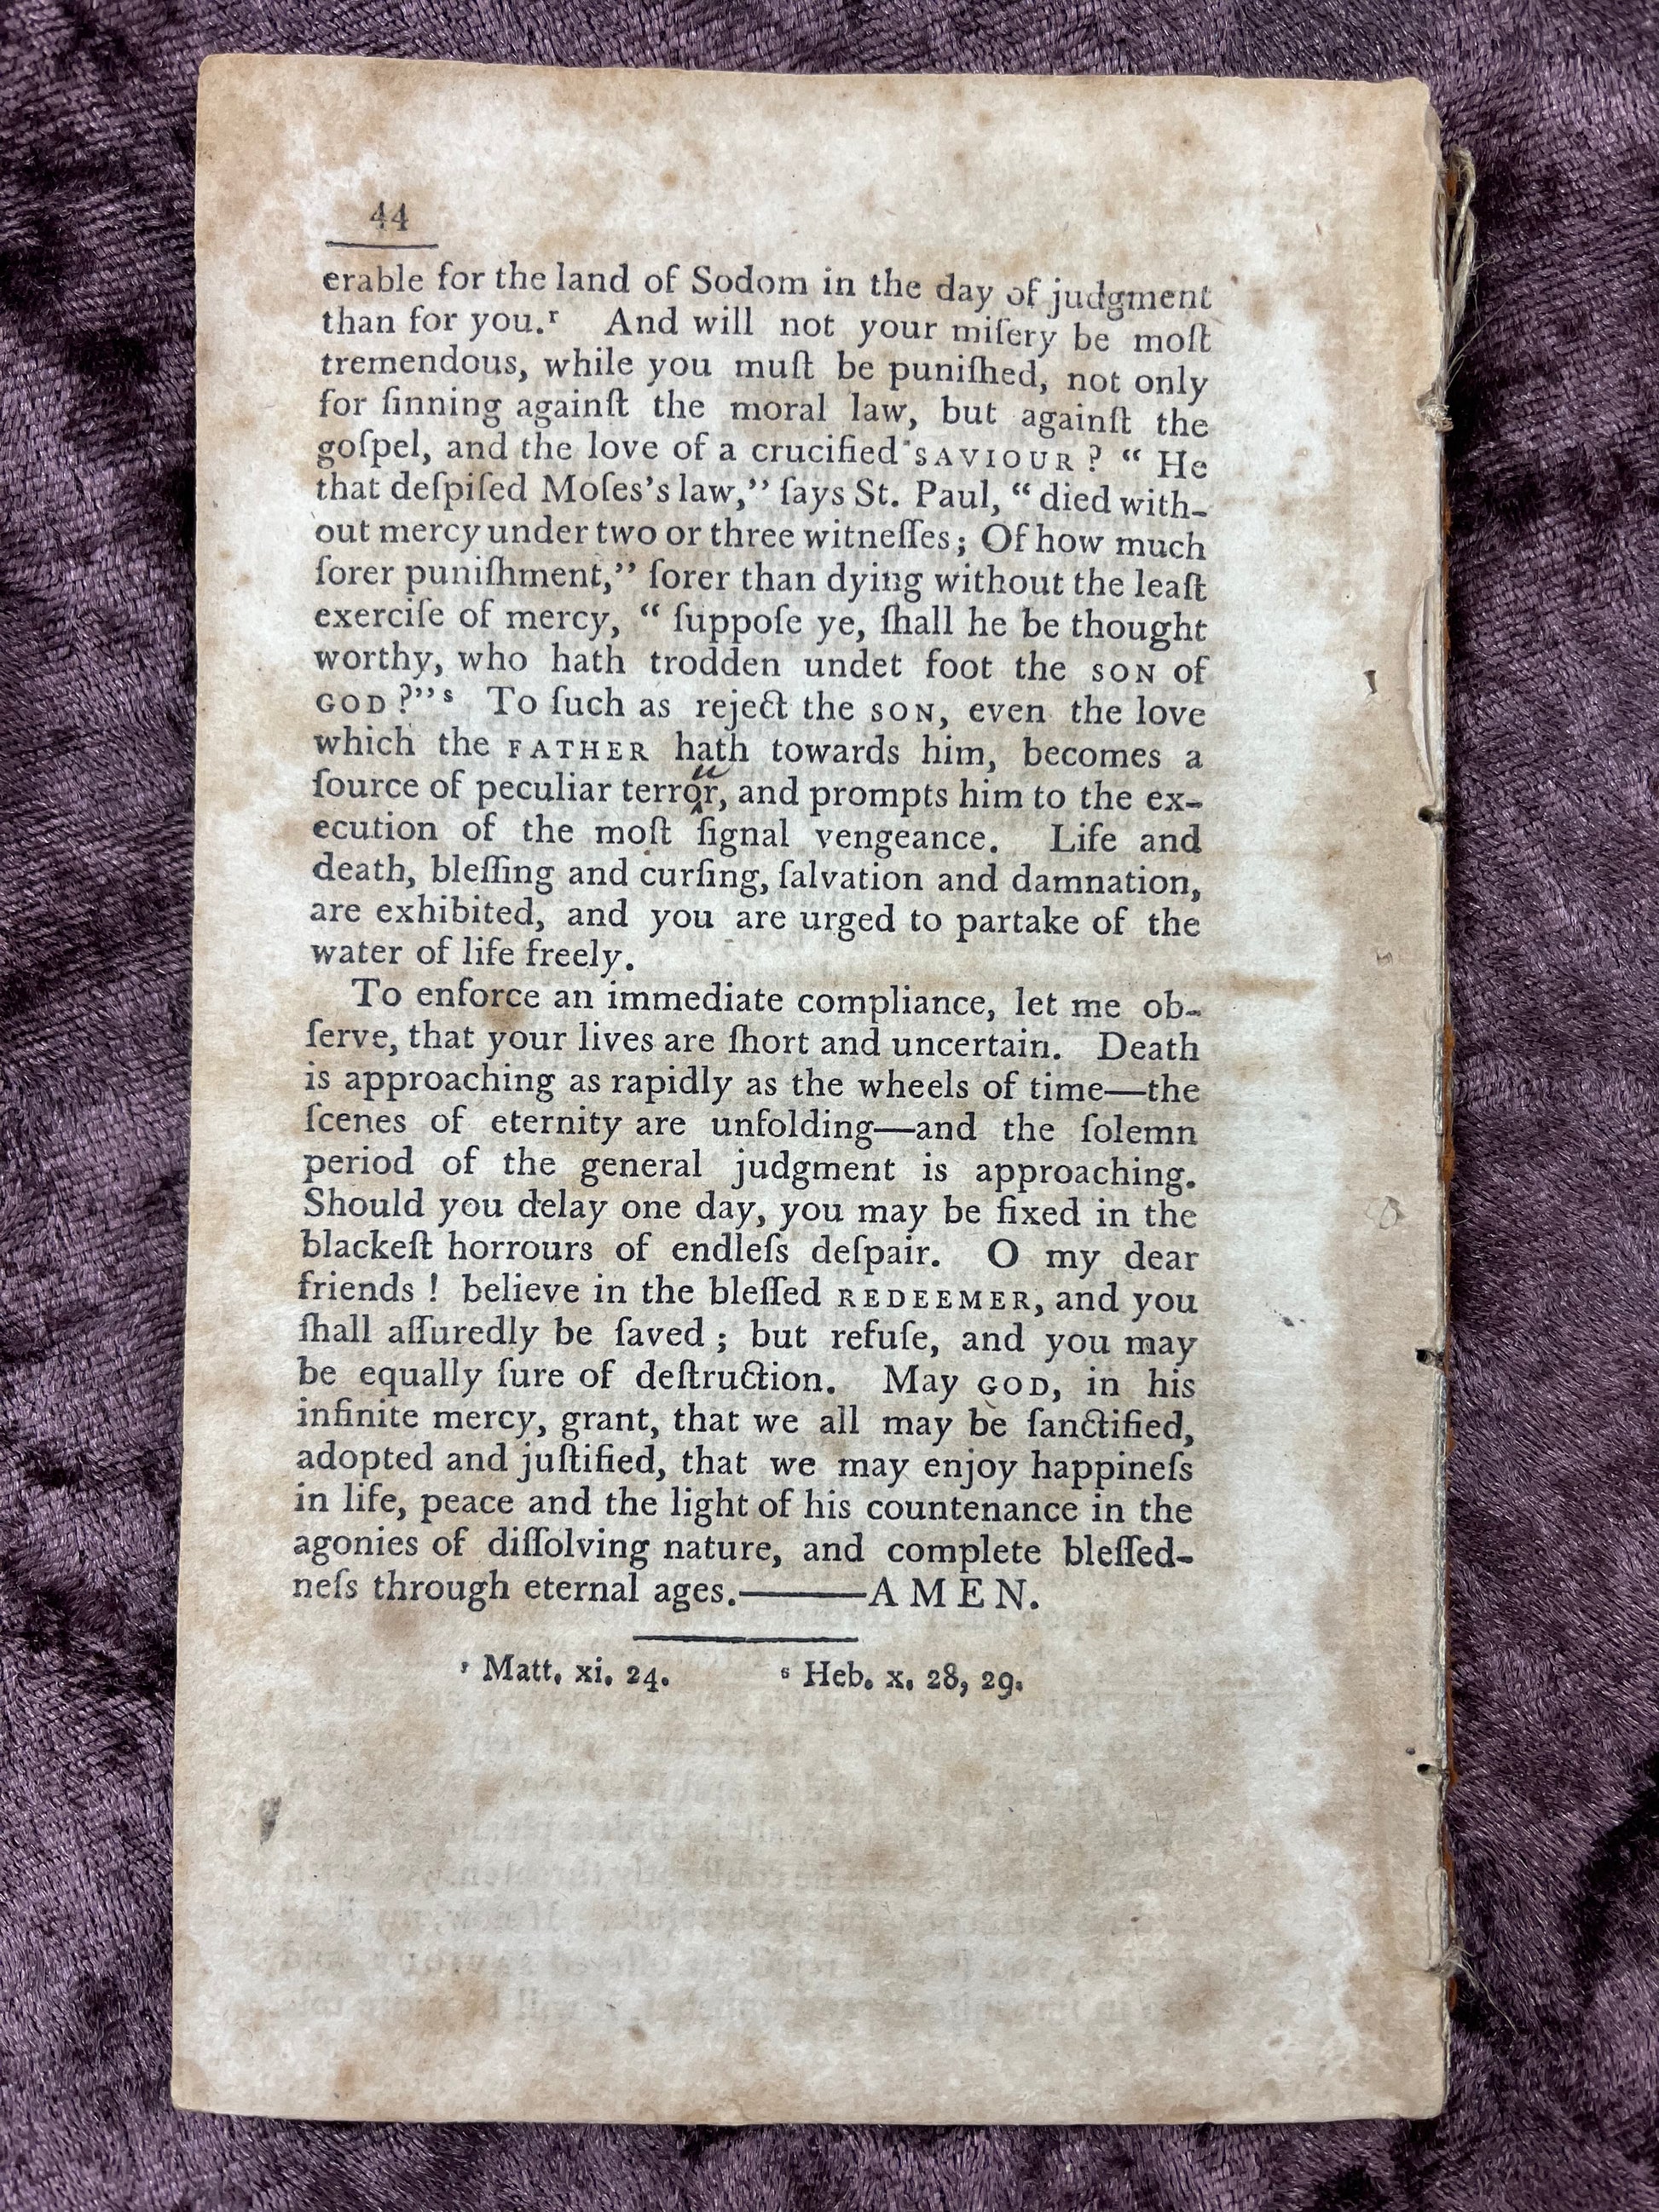 44
erable for the land of Sodom in the day of judgment
than for you.ʳ And will not your miſery be moſt
tremendous, while you muſt be puniſhed, not only
for ſinning againſt the moral law, but againſt the
goſpel, and the love of a crucified SAVIOUR? “ He
that deſpiſed Moſes's law,” ſays St. Paul, “ died with-
out mercy under two or three witneſſes; Of how much
ſorer puniſhment,” ſorer than dying without the leaſt
exerciſe of mercy, “ ſuppoſe ye, ſhall he be thought
worthy, who hath trodden undet foot the SON of
GOD?”ˢ To ſuch as reject the SON, even the love
which the FATHER hath towards him, becomes a
u
ſource of peculiar terror, and prompts him to the ex-
ecution of the moſt ſignal vengeance. Life and
death, bleſſing and curſing, ſalvation and damnation,
are exhibited, and you are urged to partake of the
water of life freely.
To enforce an immediate compliance, let me ob-
ſerve, that your lives are ſhort and uncertain. Death
is approaching as rapidly as the wheels of time—the
ſcenes of eternity are unfolding—and the ſolemn
period of the general judgment is approaching.
Should you delay one day, you may be fixed in the
blackeſt horrours of endleſs deſpair. O my dear
friends ! believe in the bleſſed REDEEMER, and you
ſhall aſſuredly be ſaved ; but refuſe, and you may
be equally ſure of deſtruction. May GOD, in his
infinite mercy, grant, that we all may be ſanctified,
adopted and juſtified, that we may enjoy happineſs
in life, peace and the light of his countenance in the
agonies of diſſolving nature, and complete bleſſed-
neſs through eternal ages.———AMEN.
ʳ Matt. xi. 24. ˢ Heb. x. 28, 29.